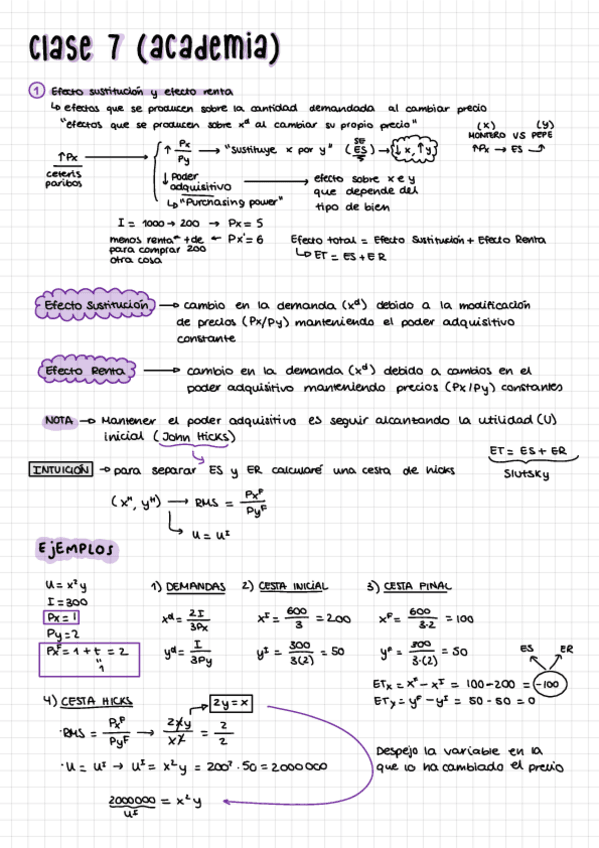 Clase 7 (academia)
1 Efecto sustitución y efecto renta
↳ efectos que se producen sobre la cantidad demandada al cambiar precio
"efectos que se producen sobre xᵈ al cambiar su propio precio"
(x) (y)
MONTERO VS PEPE
↑Px → ES
↑Px ceteris paribos
↑ Px/Py → "Sustituye x por y" (SE ES) → ↓x, ↑y
↓ Poder adquisitivo → efecto sobre x e y que depende del tipo de bien
↳ "Purchasing power"
I = 1000 → 200 → Px = 5
menos renta + de ← Px' = 6
para comprar 200
otra cosa
Efecto total = Efecto Sustitución + Efecto Renta
↳ ET = ES + ER
Efecto Sustitución → cambio en la demanda (xᵈ) debido a la modificación
de precios (Px/Py) manteniendo el poder adquisitivo
constante
Efecto Renta → cambio en la demanda (xᵈ) debido a cambios en el
poder adquisitivo manteniendo precios (Px/Py) constantes
NOTA → Mantener el poder adquisitivo es seguir alcantando la utilidad (U)
inicial (John Hicks)
ET = ES + ER
Slutsky
INTUICIÓN → para separar ES y ER calcularé una cesta de hicks
(xᴴ, yᴴ) → RMS = Pxᶠ/Pyᶠ
↳ U = Uᴵ
EJEMPLOS
U = x²y
I = 300
Px = 1
Py = 2
Pxᶠ = 1 + t = 2
" 1
1) DEMANDAS
xᵈ = 2I/3Px
yᵈ = I/3Py
2) CESTA INICIAL
xᴵ = 600/3 = 200
yᴵ = 300/3(2) = 50
3) CESTA FINAL
xᶠ = 600/3·2 = 100
yᶠ = 300/3·(2) = 50
ES ER
ETx = xᶠ - xᴵ = 100 - 200 = -100
ETy = yᶠ - yᴵ = 50 - 50 = 0
4) CESTA HICKS
2y = x
· RMS = Pxᶠ/Pyᶠ → 2xy/xx = 2/2
· U = Uᴵ → Uᴵ = x²y = 200² · 50 = 2000000
2000000 = x²y
Uᴵ
Despejo la variable en la
que lo ha cambiado el precio